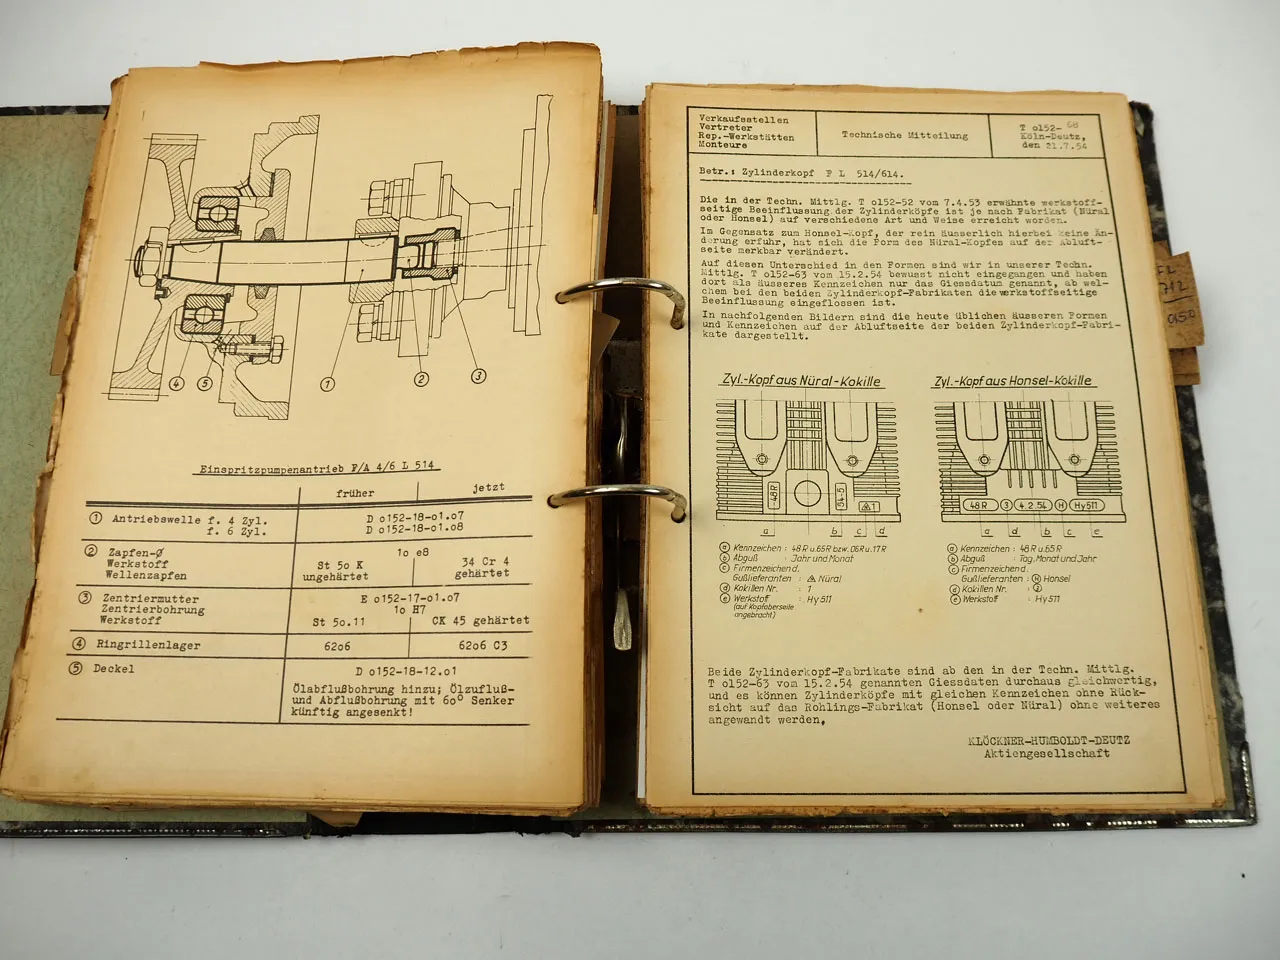 4
5
1
2
3
Einspritzpumpenantrieb F/A 4/6 L 514
früher jetzt
1 Antriebswelle f. 4 Zyl. D o152-18-o1.o7
f. 6 Zyl. D o152-18-o1.o8
2 Zapfen-Ø 1o e8
Werkstoff St 5o K 34 Cr 4
Wellenzapfen ungehärtet gehärtet
3 Zentriermutter E o152-17-o1.o7
Zentrierbohrung 1o H7
Werkstoff St 5o.11 CK 45 gehärtet
4 Ringrillenlager 62o6 62o6 C3
5 Deckel D o152-18-12.o1
Ölabflußbohrung hinzu; Ölzufluß-
und Abflußbohrung mit 6o° Senker
künftig angesenkt!
Verkaufsstellen
Vertreter
Rep.-Werkstätten
Monteure
Technische Mitteilung
T o152-68
Köln-Deutz,
den 21.7.54
Betr.: Zylinderkopf F L 514/614.
Die in der Techn. Mittlg. T o152-52 vom 7.4.53 erwähnte werkstoff-
seitige Beeinflussung der Zylinderköpfe ist je nach Fabrikat (Nüral
oder Honsel) auf verschiedene Art und Weise erreicht worden.
Im Gegensatz zum Honsel-Kopf, der rein äusserlich hierbei keine Än-
derung erfuhr, hat sich die Form des Nüral-Kopfes auf der Abluft-
seite merkbar verändert.
Auf diesen Unterschied in den Formen sind wir in unserer Techn.
Mittlg. T o152-63 vom 15.2.54 bewusst nicht eingegangen und haben
dort als äusseres Kennzeichen nur das Giessdatum genannt, ab wel-
chem bei den beiden Zylinderkopf-Fabrikaten die werkstoffseitige
Beeinflussung eingeflossen ist.
In nachfolgenden Bildern sind die heute üblichen äusseren Formen
und Kennzeichen auf der Abluftseite der beiden Zylinderkopf-Fabri-
kate dargestellt.
Zyl.-Kopf aus Nüral-Kokille Zyl.-Kopf aus Honsel-Kokille
48R 54-5 1 48R 3 4.2.54 H Hy511
a b c d a d b c e
a Kennzeichen : 48R u.65R bzw. 06R u.17R
b Abguß : Jahr und Monat
c Firmenzeichen d.
Gußlieferanten : Nüral
d Kokillen Nr. : 1
e Werkstoff : Hy511
(auf Kopfoberseite
angebracht)
a Kennzeichen : 48R u.65R
b Abguß : Tag, Monat und Jahr
c Firmenzeichen d.
Gußlieferanten : H Honsel
d Kokillen Nr. : 2
e Werkstoff : Hy511
Beide Zylinderkopf-Fabrikate sind ab den in der Techn. Mittlg.
T o152-63 vom 15.2.54 genannten Giessdaten durchaus gleichwertig,
und es können Zylinderköpfe mit gleichen Kennzeichen ohne Rück-
sicht auf das Rohlings-Fabrikat (Honsel oder Nüral) ohne weiteres
angewandt werden.
KLÖCKNER-HUMBOLDT-DEUTZ
Aktiengesellschaft
FL
712